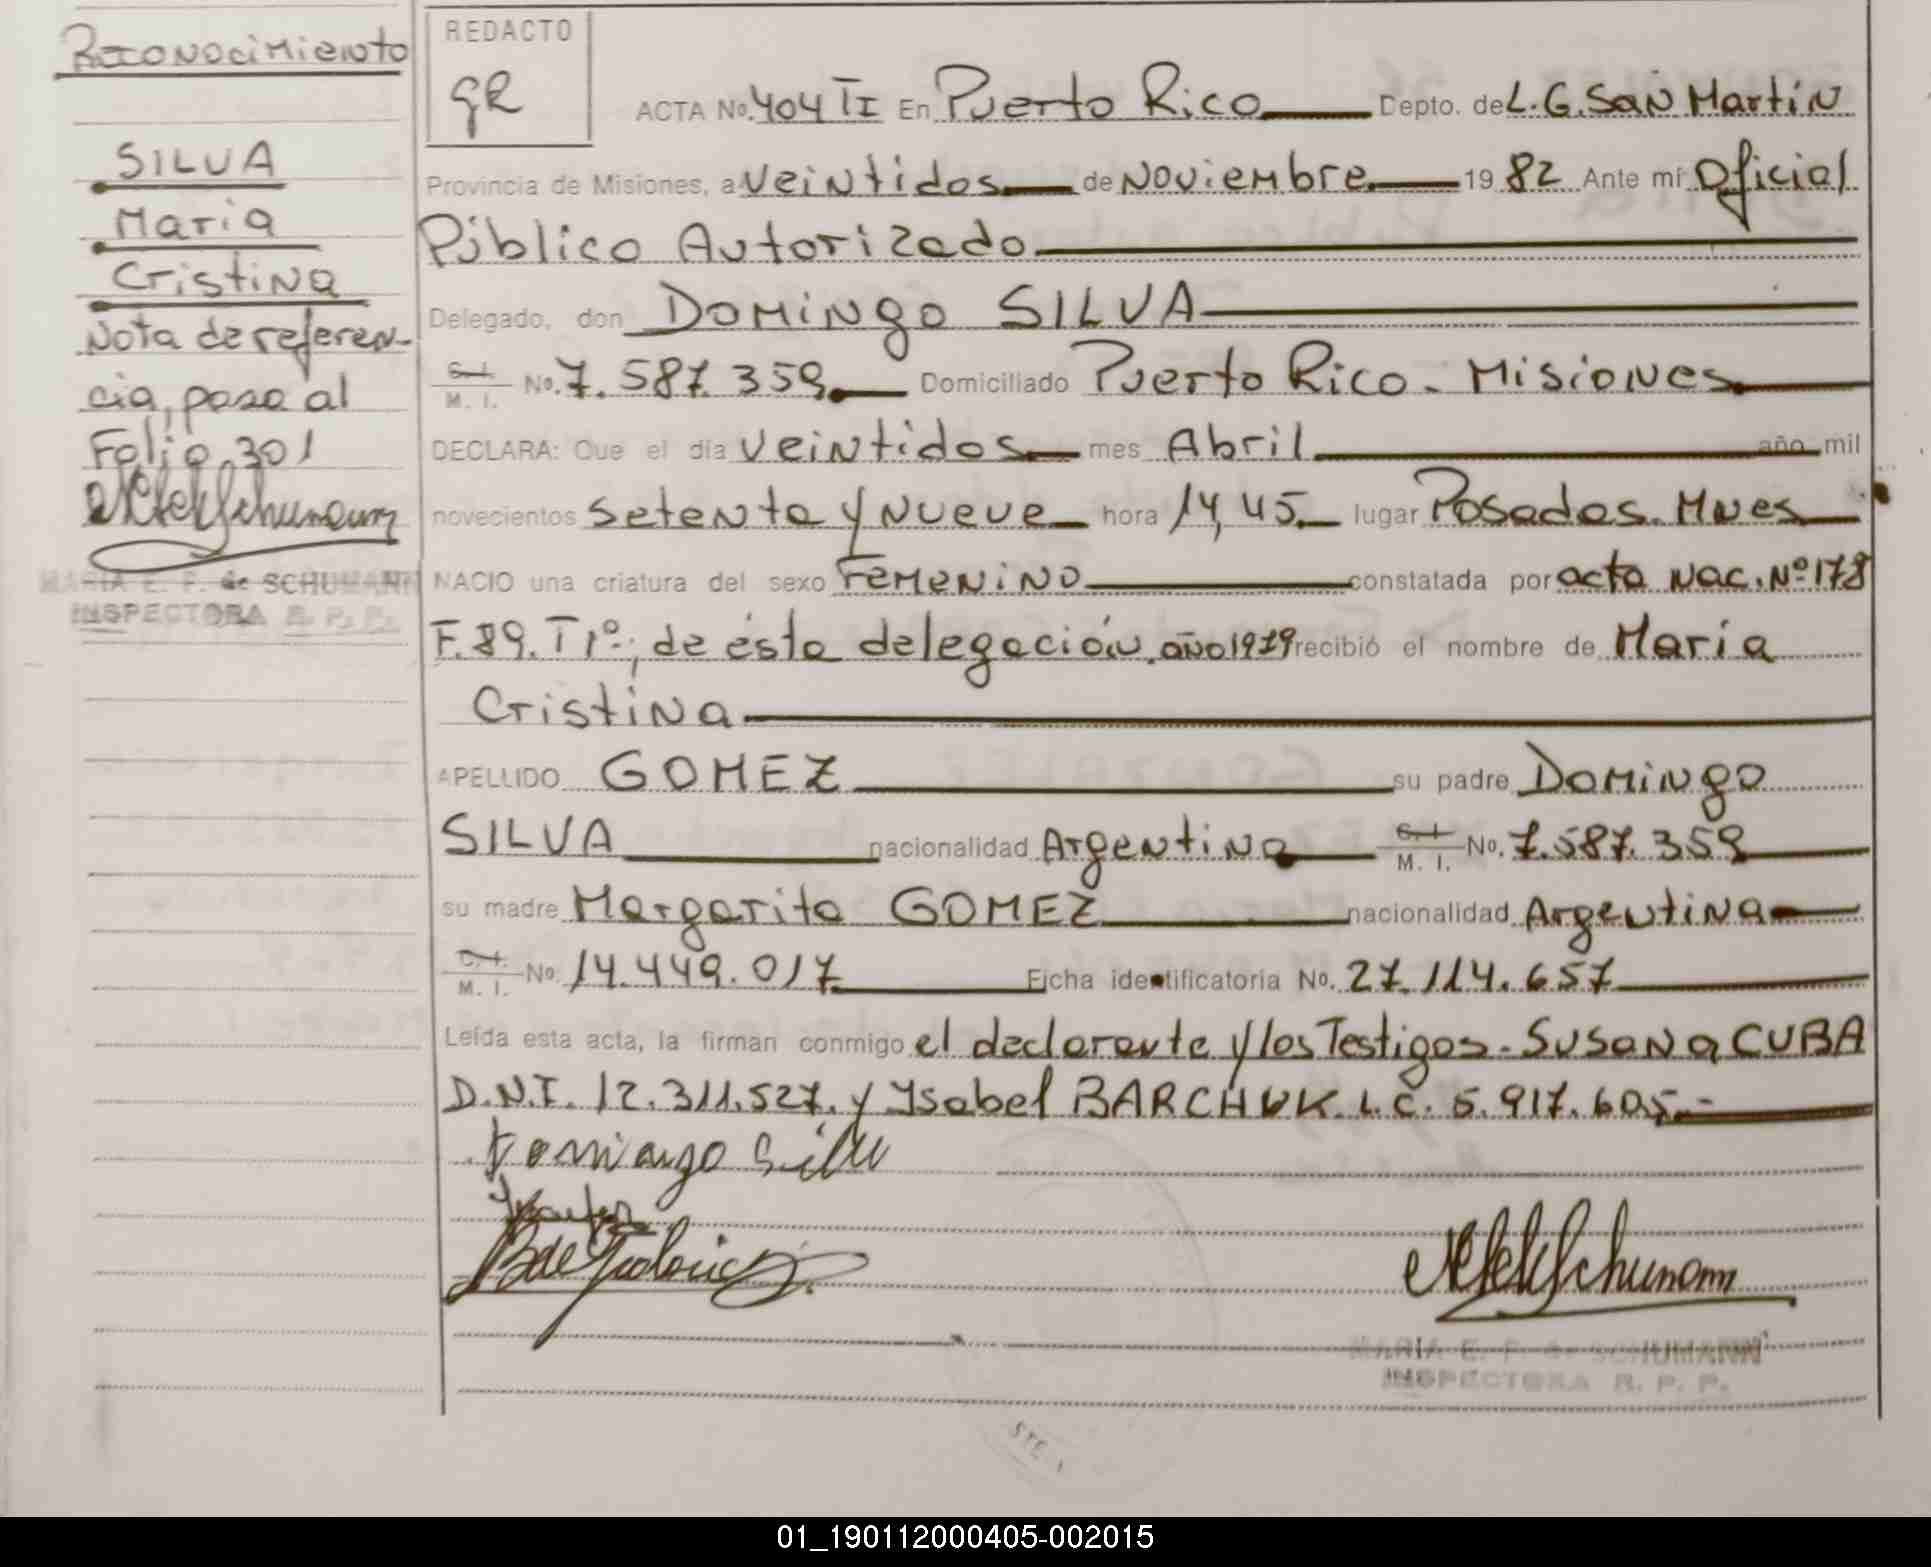 Reconocimiento
SILVA
Maria
Cristina
Nota de referen-
cia, pasa al
Folio 301
MARIA E. P. de SCHUMANN
INSPECTORA R. P. P.
REDACTO
GR
ACTA No. 404 TI En Puerto Rico Depto. de L. G. San Martin
Provincia de Misiones, a veintidos de Noviembre 19 82 Ante mí Oficial
Público Autorizado
Delegado, don DOMINGO SILVA
C. I. M. I. No. 7.587.359 Domiciliado Puerto Rico - Misiones
DECLARA: Que el día veintidos mes Abril año mil
novecientos setenta y nueve hora 14,45 lugar Posadas. Mnes
NACIO una criatura del sexo Femenino constatada por acta nac. Nº 178
F. 89. T 1º; de ésta delegación, año 1979 recibió el nombre de María
Cristina
APELLIDO GOMEZ su padre Domingo
SILVA nacionalidad Argentina C. I. M. I. No. 7.587.359
su madre Margarita GOMEZ nacionalidad Argentina
C. I. M. I. No. 14.449.017 Ficha identificatoria No. 27.114.657
Leída esta acta, la firman conmigo el declarante y los Testigos - Susana CUBA
D.N.I. 12.311.527. y Ysabel BARCHUK L.C. 5.917.605.-
Domingo Silva
MARIA E. P. de SCHUMANN
INSPECTORA R. P. P.
01_190112000405-002015